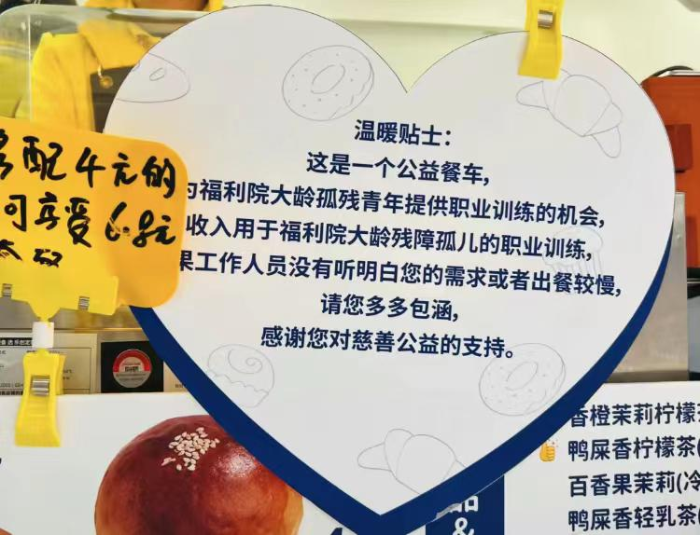 温暖贴士：
这是一个公益餐车,
福利院大龄孤残青年提供职业训练的机会,
收入用于福利院大龄残障孤儿的职业训练,
果工作人员没有听明白您的需求或者出餐较慢,
请您多多包涵,
感谢您对慈善公益的支持。
配4元的
可享受6.8元
香橙茉莉柠檬
鸭屎香柠檬茶(
百香果茉莉(冷
鸭屎香轻乳茶(
品&